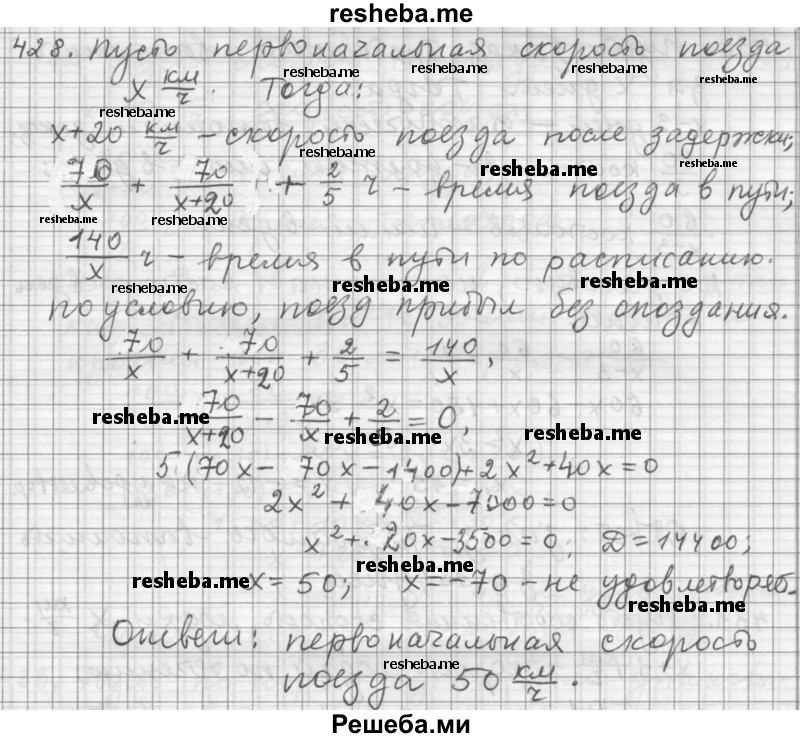 resheba.me
428. Пусть первоначальная скорость поезда
x км/ч. Тогда:
resheba.me resheba.me resheba.me
resheba.me
x+20 км/ч – скорость поезда после задержки;
resheba.me resheba.me resheba.me
70/x + 70/(x+20) + 2/5 ч – время поезда в пути;
resheba.me resheba.me
140/x ч – время в пути по расписанию.
resheba.me resheba.me resheba.me
по условию, поезд прибыл без опоздания.
70/x + 70/(x+20) + 2/5 = 140/x,
70/(x+20) – 70/x + 2/5 = 0,
resheba.me resheba.me resheba.me
5(70x – 70x – 1400) + 2x² + 40x = 0
2x² + 40x – 7000 = 0
x² + 20x – 3500 = 0; D = 14400;
resheba.me resheba.me
x = 50; x = –70 – не удовлетворяет.
resheba.me
Ответ: первоначальная скорость
resheba.me
поезда 50 км/ч.
Решеба.ми